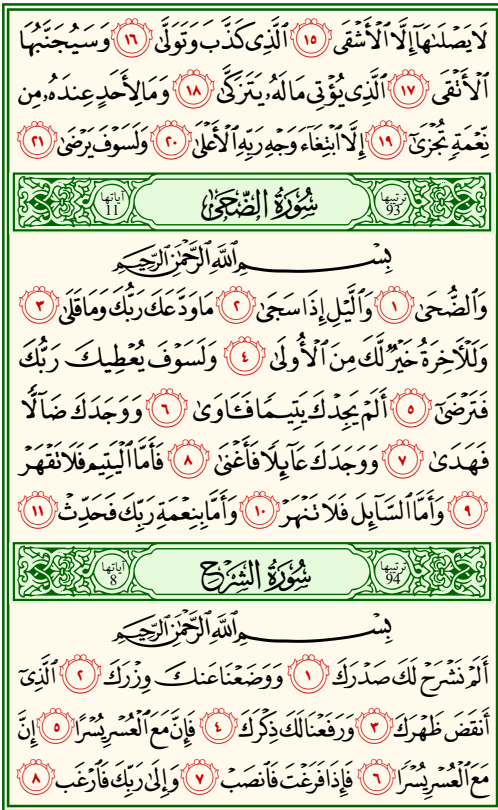 لَا يَصْلَىٰهَآ إِلَّا ٱلْأَشْقَى ١٥ ٱلَّذِى كَذَّبَ وَتَوَلَّىٰ ١٦ وَسَيُجَنَّبُهَا
ٱلْأَتْقَى ١٧ ٱلَّذِى يُؤْتِى مَالَهُۥ يَتَزَكَّىٰ ١٨ وَمَا لِأَحَدٍ عِندَهُۥ مِن
نِّعْمَةٍ تُجْزَىٰٓ ١٩ إِلَّا ٱبْتِغَآءَ وَجْهِ رَبِّهِ ٱلْأَعْلَىٰ ٢٠ وَلَسَوْفَ يَرْضَىٰ ٢١
ترتيبها 93 سُورَةُ الضُّحَىٰ آياتها 11
بِسْمِ ٱللَّهِ ٱلرَّحْمَٰنِ ٱلرَّحِيمِ
وَٱلضُّحَىٰ ١ وَٱلَّيْلِ إِذَا سَجَىٰ ٢ مَا وَدَّعَكَ رَبُّكَ وَمَا قَلَىٰ ٣
وَلَلْـَٔاخِرَةُ خَيْرٌ لَّكَ مِنَ ٱلْأُولَىٰ ٤ وَلَسَوْفَ يُعْطِيكَ رَبُّكَ
فَتَرْضَىٰٓ ٥ أَلَمْ يَجِدْكَ يَتِيمًا فَـَٔاوَىٰ ٦ وَوَجَدَكَ ضَآلًّا
فَهَدَىٰ ٧ وَوَجَدَكَ عَآئِلًا فَأَغْنَىٰ ٨ فَأَمَّا ٱلْيَتِيمَ فَلَا تَقْهَرْ
٩ وَأَمَّا ٱلسَّآئِلَ فَلَا تَنْهَرْ ١٠ وَأَمَّا بِنِعْمَةِ رَبِّكَ فَحَدِّثْ ١١
ترتيبها 94 سُورَةُ الشَّرْحِ آياتها 8
بِسْمِ ٱللَّهِ ٱلرَّحْمَٰنِ ٱلرَّحِيمِ
أَلَمْ نَشْرَحْ لَكَ صَدْرَكَ ١ وَوَضَعْنَا عَنكَ وِزْرَكَ ٢ ٱلَّذِىٓ
أَنقَضَ ظَهْرَكَ ٣ وَرَفَعْنَا لَكَ ذِكْرَكَ ٤ فَإِنَّ مَعَ ٱلْعُسْرِ يُسْرًا ٥ إِنَّ
مَعَ ٱلْعُسْرِ يُسْرًا ٦ فَإِذَا فَرَغْتَ فَٱنصَبْ ٧ وَإِلَىٰ رَبِّكَ فَٱرْغَب ٨